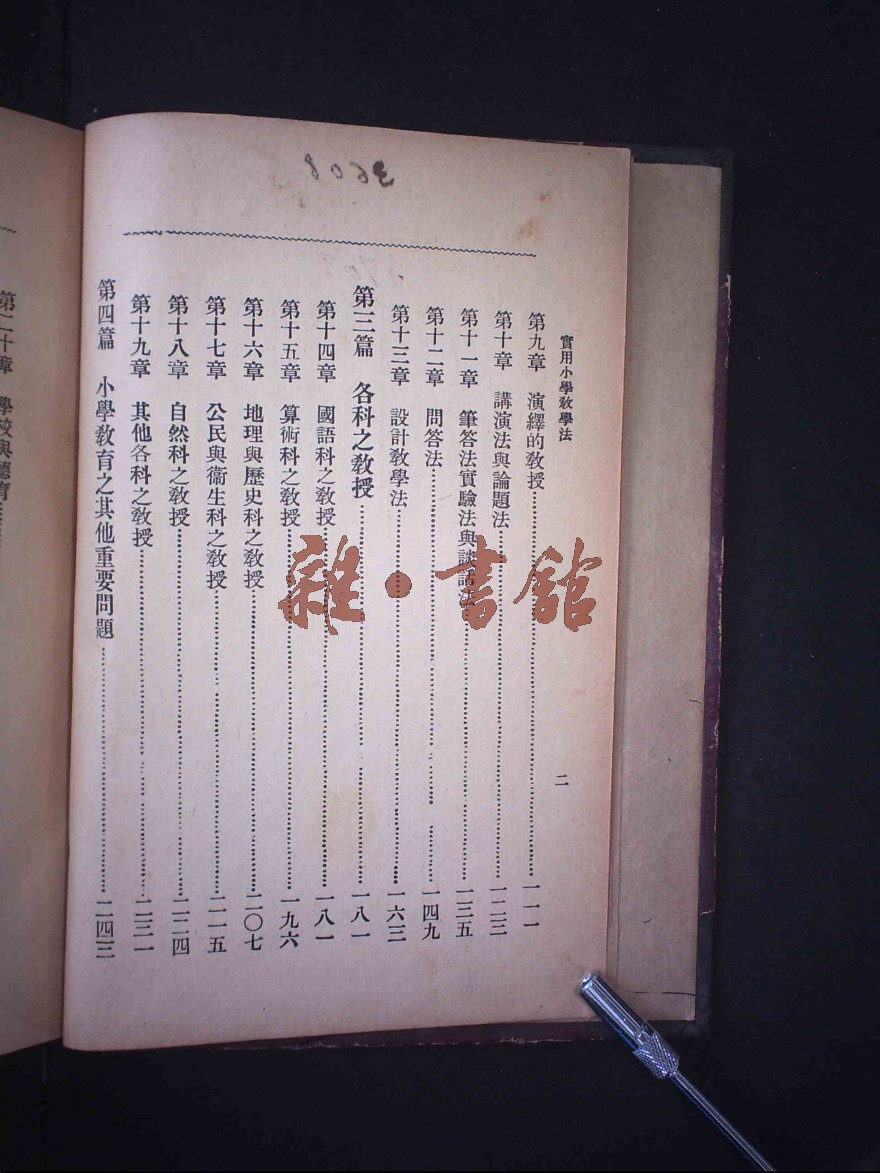 實用小學敎學法
二
第九章 演繹的敎授……一一一
第十章 講演法與論題法……一二三
第十一章 筆答法實驗法與談話法……一三五
第十二章 問答法……一四九
第十三章 設計敎學法……一六三
第三篇 各科之敎授……一八一
第十四章 國語科之敎授……一八一
第十五章 算術科之敎授……一九六
第十六章 地理與歷史科之敎授……二〇七
第十七章 公民與衞生科之敎授……二一五
第十八章 自然科之敎授……二二四
第十九章 其他各科之敎授……二三一
第四篇 小學敎育之其他重要問題……二四三
第二十章 學校與德育……
雜·書館